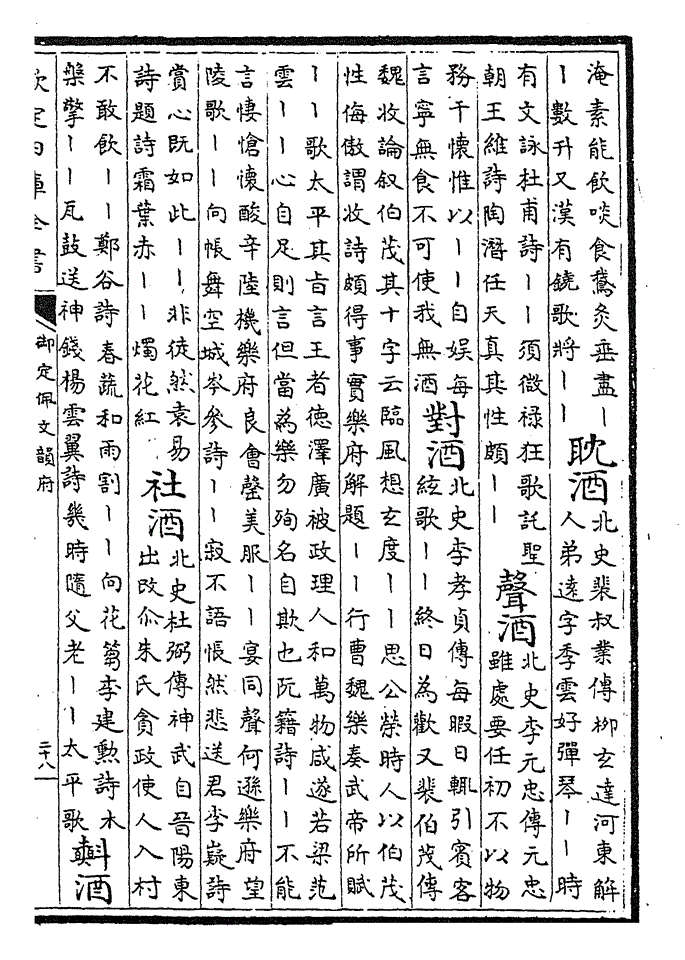 淹素能飲啖食鵞炙垂盡丨
丨數升又漢有鐃歌將丨丨
耽酒
北史裴叔業傳柳玄達河東解
人弟遠字季雲好彈琴丨丨時
有文詠杜甫詩丨丨須微祿狂歌託聖
朝王維詩陶潛任天真其性頗丨丨
聲酒
北史李元忠傳元忠
雖處要任初不以物
務干懷惟以丨丨自娯每
言寧無食不可使我無酒
對酒
北史李孝貞傳每暇日輒引賓客
絃歌丨丨終日為歡又裴伯茂傳
魏收論叙伯茂其十字云臨風想玄度丨丨思公榮時人以伯茂
性侮傲謂收詩頗得事實樂府解題丨丨行曹魏樂奏武帝所賦
丨丨歌太平其旨言王者德澤廣被政理人和萬物咸遂若梁范
雲丨丨心自足則言但當為樂勿殉名自欺也阮籍詩丨丨不能
言悽愴懷酸辛陸機樂府良會罄美服丨丨宴同聲何遜樂府望
陵歌丨丨向帳舞空城岑參詩丨丨寂不語悵然悲送君李嶷詩
賞心既如此丨丨非徒然袁易
詩題詩霜葉赤丨丨燭花紅
社酒
北史杜弼傳神武自晉陽東
出改尒朱氏貪政使人入村
不敢飲丨丨鄭谷詩春蔬和雨割丨丨向花篘李建勲詩木
槃擎丨丨瓦鼓送神錢楊雲翼詩幾時隨父老丨丨太平歌
斟酒
欽定四庫全書
御定佩文韻府
二十八